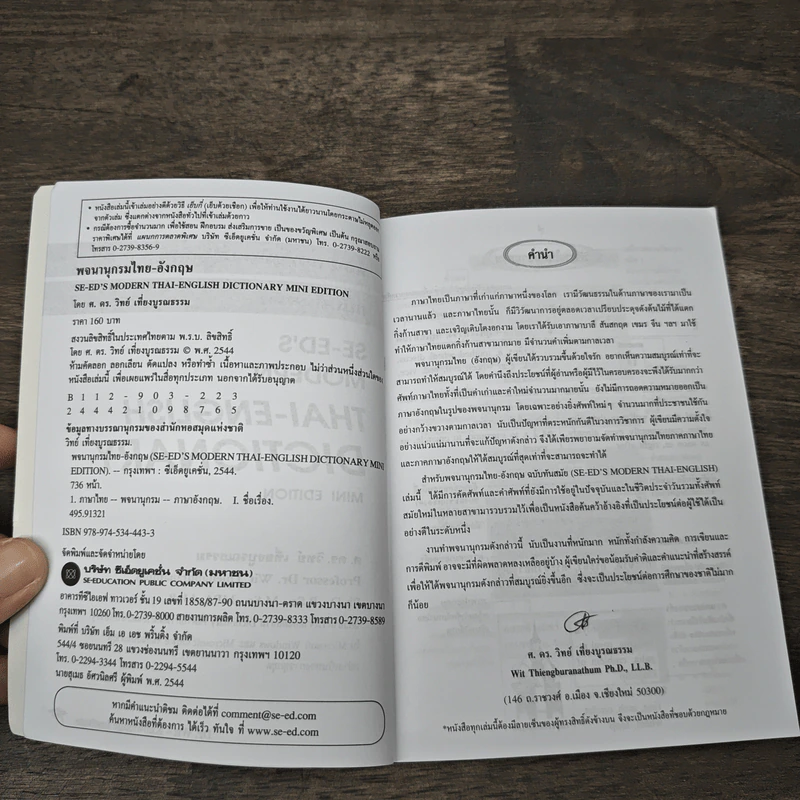 • หนังสือเล่มนี้เข้าเล่มอย่างดีด้วยวิธี เย็บกี่ (เย็บด้วยเชือก) เพื่อให้ท่านใช้งานได้ยาวนานโดยกระดาษไม่หลุดออก
จากตัวเล่ม ซึ่งแตกต่างจากหนังสือทั่วไปที่เข้าเล่มด้วยกาว
• กรณีต้องการซื้อจำนวนมาก เพื่อใช้สอน ฝึกอบรม ส่งเสริมการขาย เป็นของขวัญพิเศษ เป็นต้น กรุณาสอบถาม
ราคาพิเศษได้ที่ แผนกการตลาดพิเศษ บริษัท ซีเอ็ดยูเคชั่น จำกัด (มหาชน) โทร. 0-2739-8222
โทรสาร 0-2739-8356-9
พจนานุกรมไทย-อังกฤษ
SE-ED'S MODERN THAI-ENGLISH DICTIONARY MINI EDITION
โดย ศ. ดร. วิทย์ เที่ยงบูรณธรรม
ราคา 160 บาท
สงวนลิขสิทธิ์ในประเทศไทยตาม พ.ร.บ. ลิขสิทธิ์
โดย ศ. ดร. วิทย์ เที่ยงบูรณธรรม © พ.ศ. 2544
ห้ามคัดลอก ลอกเลียน ดัดแปลง หรือทำซ้ำ เนื้อหาและภาพประกอบ ไม่ว่าส่วนหนึ่งส่วนใดของ
หนังสือเล่มนี้ เพื่อเผยแพร่ในสื่อทุกประเภท นอกจากได้รับอนุญาต
B 1 1 2 - 9 0 3 - 2 2 3
2 4 4 4 2 1 0 9 8 7 6 5
ข้อมูลทางบรรณานุกรมของสำนักหอสมุดแห่งชาติ
วิทย์ เที่ยงบูรณธรรม.
พจนานุกรมไทย-อังกฤษ (SE-ED'S MODERN THAI-ENGLISH DICTIONARY MINI
EDITION). -- กรุงเทพฯ : ซีเอ็ดยูเคชั่น, 2544.
736 หน้า.
1. ภาษาไทย -- พจนานุกรม -- ภาษาอังกฤษ. I. ชื่อเรื่อง.
495.91321
ISBN 978-974-534-443-3
จัดพิมพ์และจัดจำหน่ายโดย
บริษัท ซีเอ็ดยูเคชั่น จำกัด (มหาชน)
SE-EDUCATION PUBLIC COMPANY LIMITED
อาคารทีซีไอเอฟ ทาวเวอร์ ชั้น 19 เลขที่ 1858/87-90 ถนนบางนา-ตราด แขวงบางนา เขตบางนา
กรุงเทพฯ 10260 โทร. 0-2739-8000 สายงานการผลิต โทร. 0-2739-8333 โทรสาร 0-2739-8589
พิมพ์ที่ บริษัท เอ็ม เอ เอช พริ้นติ้ง จำกัด
544/4 ซอยนนทรี 28 แขวงช่องนนทรี เขตยานนาวา กรุงเทพฯ 10120
โทร. 0-2294-3344 โทรสาร 0-2294-5544
นายสุเมธ อัศวนิลศรี ผู้พิมพ์ พ.ศ. 2544
หากมีคำแนะนำติชม ติดต่อได้ที่ comment@se-ed.com
ค้นหาหนังสือที่ต้องการ ได้เร็ว ทันใจ ที่ www.se-ed.com
คำนำ
ภาษาไทยเป็นภาษาที่เก่าแก่ภาษาหนึ่งของโลก เรามีวัฒนธรรมในด้านภาษาของเรามาเป็น
เวลานานแล้ว และภาษาไทยนั้น ก็มีวิวัฒนาการอยู่ตลอดเวลาเปรียบประดุจดังต้นไม้ที่ได้แตก
กิ่งก้านสาขา และเจริญเติบโตงอกงาม โดยเราได้รับเอาภาษาบาลี สันสกฤต เขมร จีน ฯลฯ มาใช้
ทำให้ภาษาไทยแตกกิ่งก้านสาขามากมาย มีจำนวนคำเพิ่มตามกาลเวลา
พจนานุกรมไทย (อังกฤษ) ผู้เขียนได้รวบรวมขึ้นด้วยใจรัก อยากเห็นความสมบูรณ์เท่าที่จะ
สามารถทำให้สมบูรณ์ได้ โดยคำนึงถึงประโยชน์ที่ผู้อ่านหรือผู้มีไว้ในครอบครองจะพึงได้รับมากกว่า
ศัพท์ภาษาไทยทั้งที่เป็นคำเก่าและคำใหม่จำนวนมากมายนั้น ยังไม่มีการถอดความหมายออกเป็น
ภาษาอังกฤษในรูปของพจนานุกรม โดยเฉพาะอย่างยิ่งศัพท์ใหม่ๆ จำนวนมากที่ประชาชนใช้กัน
อย่างกว้างขวางตามกาลเวลา นับเป็นปัญหาที่ตระหนักกันดีในวงการวิชาการ ผู้เขียนมีความตั้งใจ
อย่างแน่วแน่มานานที่จะแก้ปัญหาดังกล่าว จึงได้เพียรพยายามจัดทำพจนานุกรมไทยภาคภาษาไทย
และภาคภาษาอังกฤษให้ได้สมบูรณ์ที่สุดเท่าที่จะสามารถจะทำได้
สำหรับพจนานุกรมไทย-อังกฤษ ฉบับทันสมัย (SE-ED'S MODERN THAI-ENGLISH)
เล่มนี้ ได้มีการคัดศัพท์และคำศัพท์ที่ยังมีการใช้อยู่ในปัจจุบันและในชีวิตประจำวันรวมทั้งศัพท์
สมัยใหม่ในหลายสาขามารวบรวมไว้เพื่อเป็นหนังสือค้นคว้าอ้างอิงที่เป็นประโยชน์ต่อผู้ใช้ได้เป็น
อย่างดีในระดับหนึ่ง
งานทำพจนานุกรมดังกล่าวนี้ นับเป็นงานที่หนักมาก หนักทั้งกำลังความคิด การเขียนและ
การตีพิมพ์ อาจจะมีที่ผิดพลาดหลงเหลืออยู่บ้าง ผู้เขียนใคร่ขอน้อมรับคำติและคำแนะนำที่สร้างสรรค์
เพื่อให้ได้พจนานุกรมดังกล่าวที่สมบูรณ์ยิ่งขึ้นอีก ซึ่งจะเป็นประโยชน์ต่อการศึกษาของชาติไม่มาก
ก็น้อย
ศ. ดร. วิทย์ เที่ยงบูรณธรรม
Wit Thiengburanathum Ph.D., LL.B.
(146 ถ.ราชวงศ์ อ.เมือง จ.เชียงใหม่ 50300)
*หนังสือทุกเล่มนี้ต้องมีลายเซ็นของผู้ทรงสิทธิ์ดังข้างบน จึงจะเป็นหนังสือที่ชอบด้วยกฎหมาย